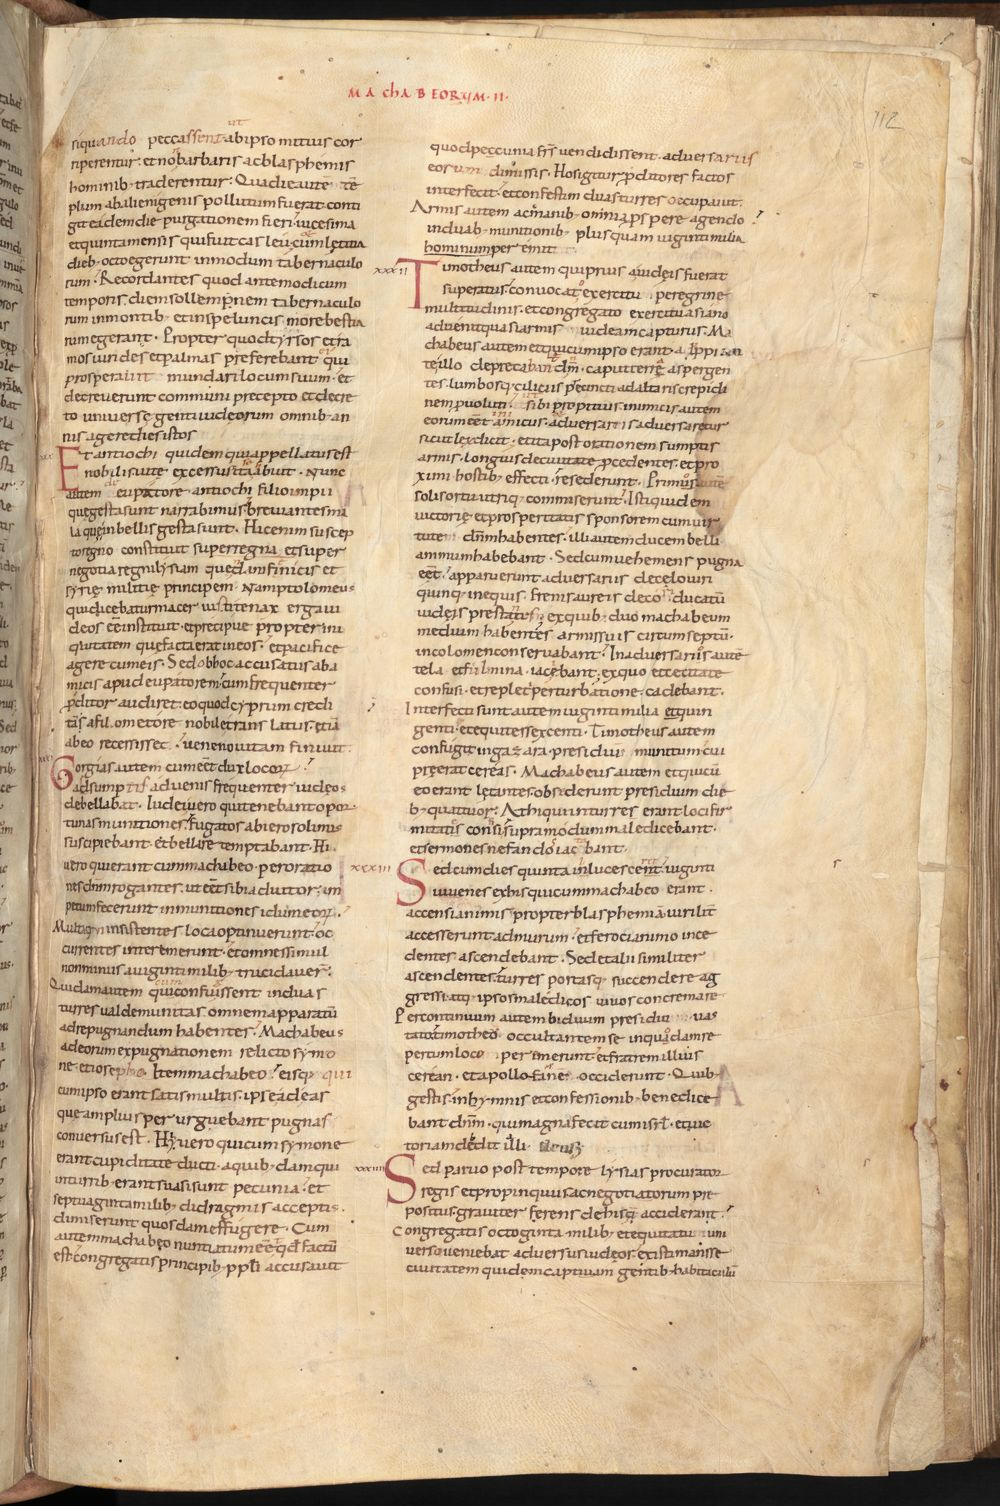 MAChABEORVM·II·
112
siquando peccassent abipso mitius cor
riperentur· et n̄ barbaris acblasphemis
hominib· traderentur· Quadie autē tē
plum abalienigenis pollutum fuerat· conti
git eadem die purgationem fieri· uicesima
etquinta mensis quifuit casleu· et cum lętitia
dieb· octo egerunt inmodum tabernaculo
rum· Recordantes quod antemodicum
temporis diem sollempnem tabernaculo
rum inmontib· et inspeluncis more bestia
rum egerant· Propter quod tyrsos et ra
mos uirides et palmas preferebant· qui
prosperauit mundari locum suum· et
decreuerunt communi precepto et decre
to uniuersę genti iudęorum omnib· an
nis agere dies istos
xxx
Et antiochi quidem qui appellatus est
nobilis uitę excessus ita habuit· Nunc
autem de eupatore antiochi filio impii
quę gesta sunt narrabimus· breuiantes ma
la quę in bellis gesta sunt· Hic enim suscep
to regno constituit super regna et super
negotia regni lysiam quędam finicis et
syrię militię principem· Nam ptolomeus
qui dicebatur macer iusti tenax erga iu
deos eē instituit· et precipue propter ini
quitatem quę facta erat in eos· et pacifice
agere cum eis· Sed ob hoc accusatus ab a
micis apud eupatorem· cum frequenter
p̄ditor audiret· eo quod cyprum credi
tā s̄ a filometore
abeo recessisset· ueneno uitam finiuit·
xxxi
Gorgias autem cum eēt dux locorꝝ·
adsumptis aduenis frequenter iudęos
debellabat· Iudei uero qui tenebant opor
tunas munitiones· fugatos ab ierosolimis
suscipiebant· et bellare temptabant· Hi
uero qui erant cum machabeo· per oratio
nes dn̄m rogantes· ut eēt sibi adiutor· im
petum fecerunt in munitiones idumeorꝝ·
Multaq· ui insistentes loca optinuerunt· oc
currentes interemerunt· et omnes simul
non minus a uiginti milib· trucidauer̄·
Quidam autem cum confuissent in duas
turres ualde munitas omnem apparatū
ad repugnandum habentes· Machabeus
ad eorum expugnationem relicto symo
ne et iosepho· Item machabeo eisq· qui
cum ipso erant satis multis· ipse ad eas
que amplius perurguebant pugnas
conuersus est· Hi uero qui cum symone
erant cupiditate ducti· a quib· dam qui
in turrib· erant suasi sunt pecunia· et
septuaginta milib· didragmis acceptis·
dimiserunt quosdam effugere· Cum
autem machabeo nuntiatum eēt qd̄ factū
est· congregatis principib· p̄p̄li accusauit
quod peccunia fr̄s uendidissent· aduersariis
eorum dimissis· Hos igitur p̄ditores factos
interfecit· et confestim duas turres occupauit·
Armis autem ac manib· omnia p̄spere agendo·
in duab· munitionib· plus quam uiginti milia
hominum peremit
xxxii
Timotheus autem qui prius a iudęis fuerat
superatus· conuocato exercitu peregrine
multitudinis· et congregato exercitu asiano
aduenit quasi armis iudeam capturus· Ma
chabeus autem et qui cum ipso erant· appropian
te illo deprecabant dn̄m· caput terra aspergen
tes· lumbosq· ciliciis p̄cincti ad altaris crepidi
nem p̄uoluti· ut sibi propitius inimicis autem
eorum eēt inimicus· et aduersariis aduersaretur
sicut lex dicit· et ita post orationem sumptis
armis· longius de ciuitate p̄cedentes· et pro
ximi hostib· effecti resederunt· Primus autē
solis ortu utriq· commiserunt· Isti quidem
uictorię et prosperitatis sponsorem cum uir
tute dn̄m habentes· illi autem ducem belli
animum habebant· Sed cum uehemens pugna
eēt· apparuerunt aduersariis de cęlo uiri
quinq· in equis frenis aureis decori ducatū
iudęis prestantes· ex quib· duo machabeum
medium habentes armis suis circumseptū·
incolomem conseruabant· In aduersarios autē
tela et fulmina iaciebant· ex quo et cecitate
confusi· et repleti perturbatione· cadebant·
Interfecti sunt autem uiginti milia et quin
genti· et equites sexcenti· Timotheus autem
confugit in gazara· presidium munitum cui
pręerat cereas· Machabeus autem et qui cū
eo erant lętantes obsederunt presidium die
b· quattuor· At hi qui in turres erant loci fir
mitatis confisi supra modum maledicebant·
et sermones nefandos iactabant·
xxxiii
Sed cum dies quinta inlucesceret· uiginti
iuuenes ex his qui cum machabeo erant
accensi animis propter blasphemiā uirilit̄
accesserunt ad murum· et feroci animo ince
dentes ascendebant· Sed et alii similiter
ascendentes· turres portasq· succendere ag
gressi· atq· ipsos maledicos uiuos concremare
Per continuum autem biduum presidio uas
tato· timotheo occultantem se in quodam re
pertum loco peremerunt· et fratrem illius
cerean· et apollofanen occiderunt· Quib·
gestis· in hymnis et confessionib· benedice
bant dn̄m· qui magna fecit cum isrl̄· et uic
toriam dedit illi·
xxxiiii
Sed paruo post tempore lysias procurator
regis et propinquus ac negotiatorum pre
positus· grauiter ferens de his quę acciderant·
Congregatis octoginta milib· et equitatu
uerso ueniebat aduersus iudęos· existimans se
ciuitatem quidem captiuam gentib· habitaculū